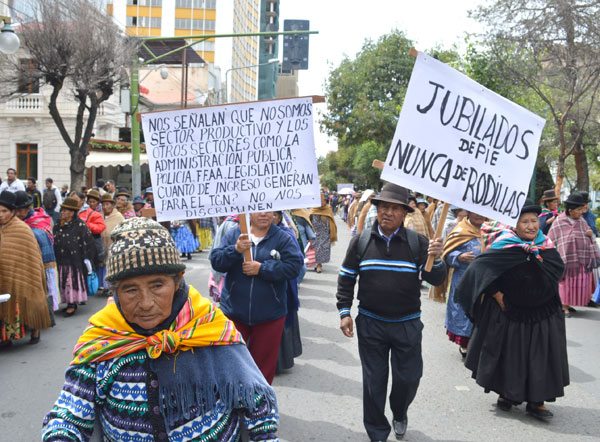 NOS SEÑALAN QUE NO SOMOS
SECTOR PRODUCTIVO Y LOS
OTROS SECTORES COMO LA
ADMINISTRACIÓN PUBLICA.
POLICIA.FF.AA.LEGISLATIVO.
CUANTO DE INGRESO GENERAN
PARA EL TGN.? NO NOS
DISCRIMINEN
JUBILADOS
DE PIE
NUNCA DE RODILLAS